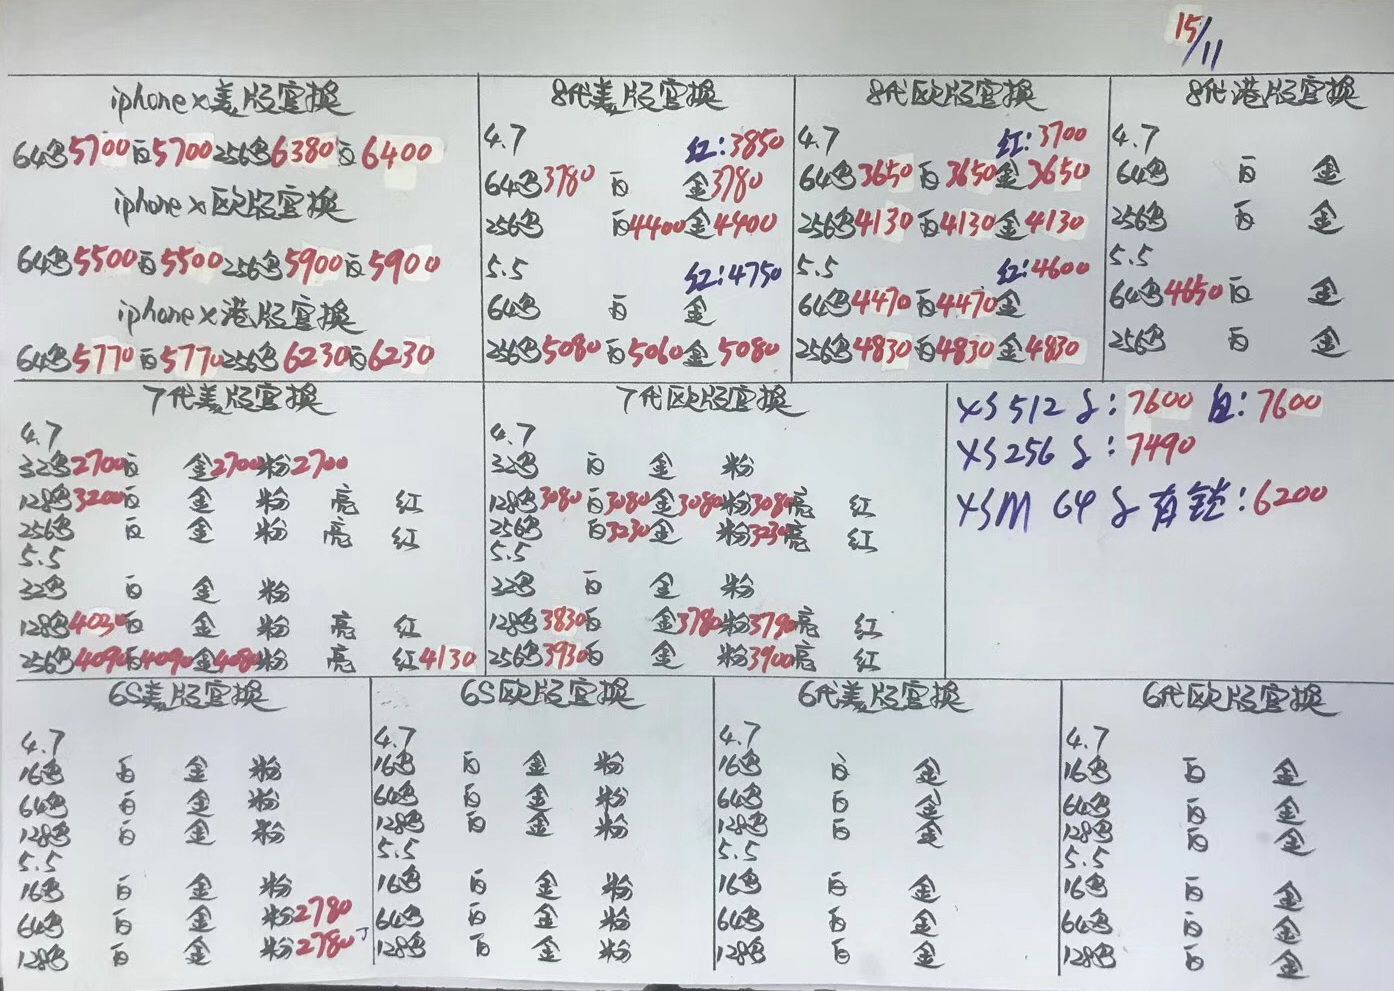 15/11
iphone x美版官换
64黑5700白5700 256黑6380白6400
iphone x欧版官换
64黑5500白5500 256黑5900白5900
iphone x港版官换
64黑5770白5770 256黑6230白6230
8代美版官换
4.7 红:3850
64黑3780 白 金3780
256黑 白4400金4400
5.5 红:4750
64黑 白 金
256黑5080白5060金5080
8代欧版官换
4.7 红:3700
64黑3650白3650金3650
256黑4130白4130金4130
5.5 红:4600
64黑4470白4470金
256黑4830白4830金4830
8代港版官换
4.7
64黑 白 金
256黑 白 金
5.5
64黑4650白 金
256黑 白 金
7代美版官换
4.7
32黑2700白 金2700粉2700
128黑3200白 金 粉 亮 红
256黑 白 金 粉 亮 红
5.5
32黑 白 金 粉
128黑4030白 金 粉 亮 红
256黑4090白4090金4080粉 亮 红4130
7代欧版官换
4.7
32黑 白 金 粉
128黑3080白3080金3080粉3080亮 红
256黑 白3230金 粉3230亮 红
5.5
32黑 白 金 粉
128黑3830白 金3780粉3790亮 红
256黑3930白 金 粉3900亮 红
XS 512 :7600 白:7600
XS 256 :7490
XSM 64 有锁:6200
6S美版官换
4.7
16黑 白 金 粉
64黑 白 金 粉
128黑 白 金 粉
5.5
16黑 白 金 粉
64黑 白 金 粉2780
128黑 白 金 粉2780
6S欧版官换
4.7
16黑 白 金 粉
64黑 白 金 粉
128黑 白 金 粉
5.5
16黑 白 金 粉
64黑 白 金 粉
128黑 白 金 粉
6代美版官换
4.7
16黑 白 金
64黑 白 金
128黑 白 金
5.5
16黑 白 金
64黑 白 金
128黑 白 金
6代欧版官换
4.7
16黑 白 金
64黑 白 金
128黑 白 金
5.5
16黑 白 金
64黑 白 金
128黑 白 金